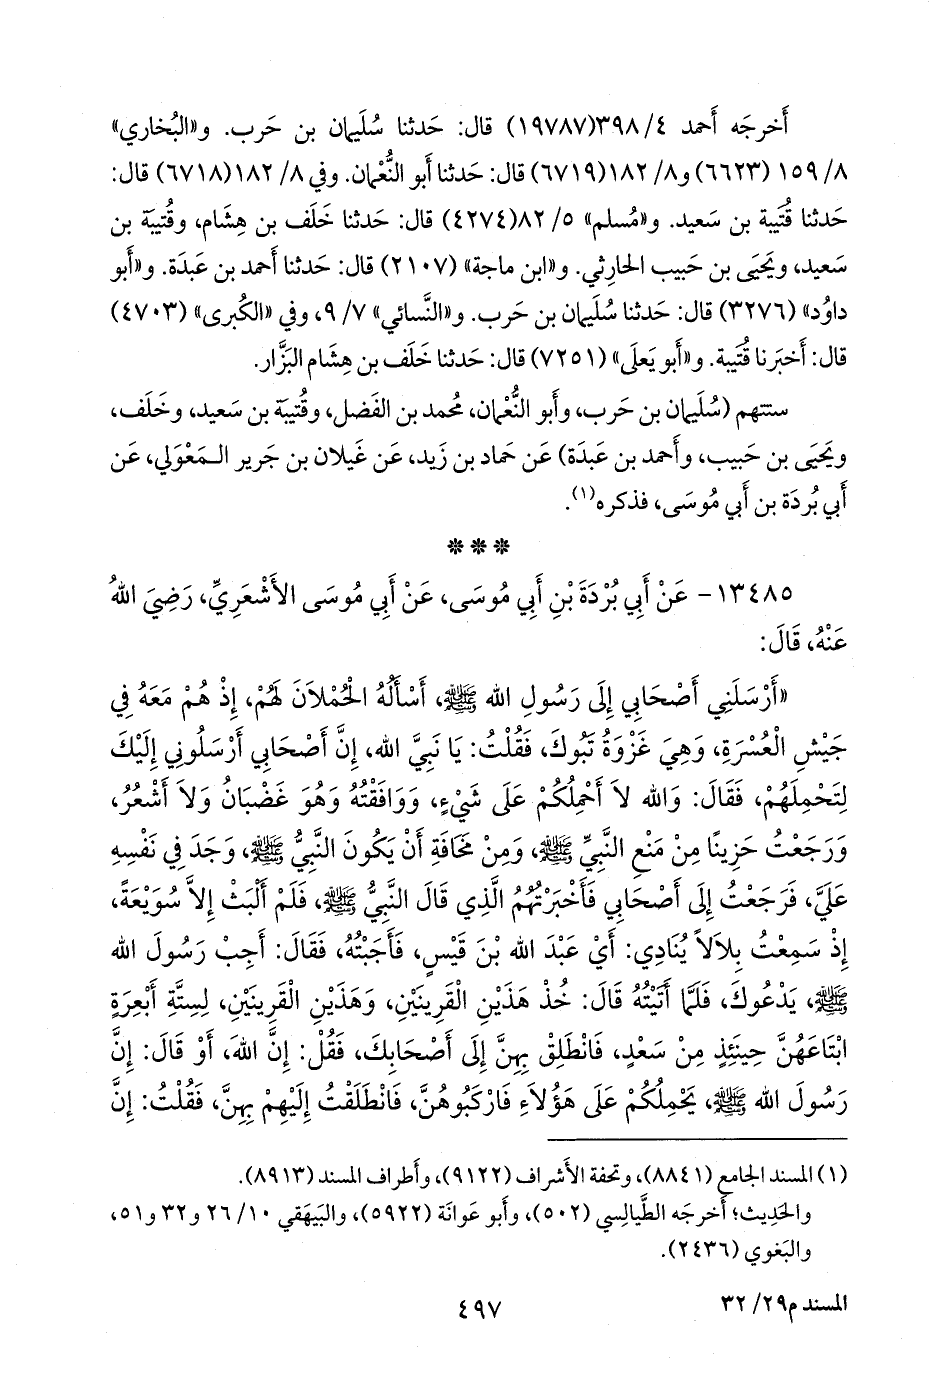 أَخرجَه أَحمد ٤/ ٣٩٨(١٩٧٨٧) قال: حَدثنا سُلَيمان بن حَرب. و«البُخاري»
٨/ ١٥٩ (٦٦٢٣) و٨/ ١٨٢(٦٧١٩) قال: حَدثنا أَبو النُّعمان. وفي ٨/ ١٨٢(٦٧١٨) قال:
حَدثنا قُتَيبة بن سَعيد. و«مُسلم» ٥/ ٨٢(٤٢٧٤) قال: حَدثنا خَلَف بن هِشَام، وقُتيبَة بن
سَعيد، ويَحيَى بن حَبيب الحارِثي. و«ابن ماجة» (٢١٠٧) قال: حَدثنا أَحمد بن عَبدَة. و«أَبو
داوُد» (٣٢٧٦) قال: حَدثنا سُلَيمان بن حَرب. و«النَّسائي» ٧/ ٩، وفي «الكُبرى» (٤٧٠٣)
قال: أَخبَرنا قُتَيبة. و«أَبو يَعلَى» (٧٢٥١) قال: حَدثنا خَلَف بن هِشَام البَزَّار.
ستتهم (سُلَيمان بن حَرب، وأَبو النُّعمان، مُحمد بن الفَضل، وقُتيبَة بن سَعيد، وخَلَف،
ويَحيَى بن حَبيب، وأَحمد بن عَبدَة) عَن حَماد بن زَيد، عَن غَيلان بن جَرير الـمَعْوَلي، عَن
أَبي بُردَة بن أَبي مُوسَى، فذكره(١).
***
١٣٤٨٥- عَنْ أَبِي بُرْدَةَ بْنِ أَبِي مُوسَى، عَنْ أَبِي مُوسَى الأَشْعَرِيِّ، رَضِيَ اللهُ
عَنْهُ، قَالَ:
«أَرْسَلَنِي أَصْحَابِي إِلَى رَسُولِ الله ﷺ، أَسْأَلُهُ الْحُمْلاَنَ لَهُمْ، إِذْ هُمْ مَعَهُ فِي
جَيْشِ الْعُسْرَةِ، وَهِيَ غَزْوَةُ تَبُوكَ، فَقُلْتُ: يَا نَبِيَّ الله، إِنَّ أَصْحَابِي أَرْسَلُونِي إِلَيْكَ
لِتَحْمِلَهُمْ، فَقَالَ: وَالله لاَ أَحْمِلُكُمْ عَلَى شَيْءٍ، وَوَافَقْتُهُ وَهُوَ غَضْبَانُ وَلاَ أَشْعُرُ،
وَرَجَعْتُ حَزِينًا مِنْ مَنْعِ النَّبِيِّ ﷺ، وَمِنْ مَخَافَةِ أَنْ يَكُونَ النَّبِيُّ ﷺ، وَجَدَ فِي نَفْسِهِ
عَلَيَّ، فَرَجَعْتُ إِلَى أَصْحَابِي فَأَخْبَرْتُهُمُ الَّذِي قَالَ النَّبِيُّ ﷺ، فَلَمْ أَلْبَثْ إِلاَّ سُوَيْعَةً،
إِذْ سَمِعْتُ بِلاَلاً يُنَادِي: أَيْ عَبْدَ الله بْنَ قَيْسٍ، فَأَجَبْتُهُ، فَقَالَ: أَجِبْ رَسُولَ الله
ﷺ، يَدْعُوكَ، فَلَمَّا أَتَيْتُهُ قَالَ: خُذْ هَذَيْنِ الْقَرِينَيْنِ، وَهَذَيْنِ الْقَرِينَيْنِ، لِسِتَّةِ أَبْعِرَةٍ
ابْتَاعَهُنَّ حِينَئِذٍ مِنْ سَعْدٍ، فَانْطَلِقْ بِهِنَّ إِلَى أَصْحَابِكَ، فَقُلْ: إِنَّ اللهَ، أَوْ قَالَ: إِنَّ
رَسُولَ الله ﷺ، يَحْمِلُكُمْ عَلَى هَؤُلاَءِ فَارْكَبُوهُنَّ، فَانْطَلَقْتُ إِلَيْهِمْ بِهِنَّ، فَقُلْتُ: إِنَّ
(١) المسند الجامع (٨٨٤١)، وتحفة الأَشراف (٩١٢٢)، وأَطراف المسند (٨٩١٣).
والحَدِيث؛ أَخرجَه الطَّيالِسي (٥٠٢)، وأَبو عَوانَة (٥٩٢٢)، والبَيهَقي ١٠/ ٢٦ و٣٢ و٥١،
والبَغوي (٢٤٣٦).
المسند م٢٩/ ٣٢
٤٩٧